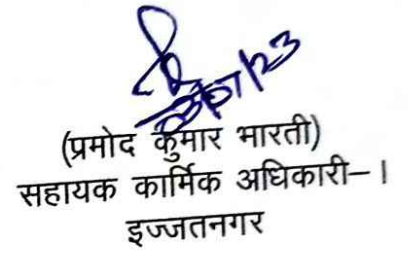 (प्रमोद कुमार भारती)
सहायक कार्मिक अधिकारी–।
इज्जतनगर